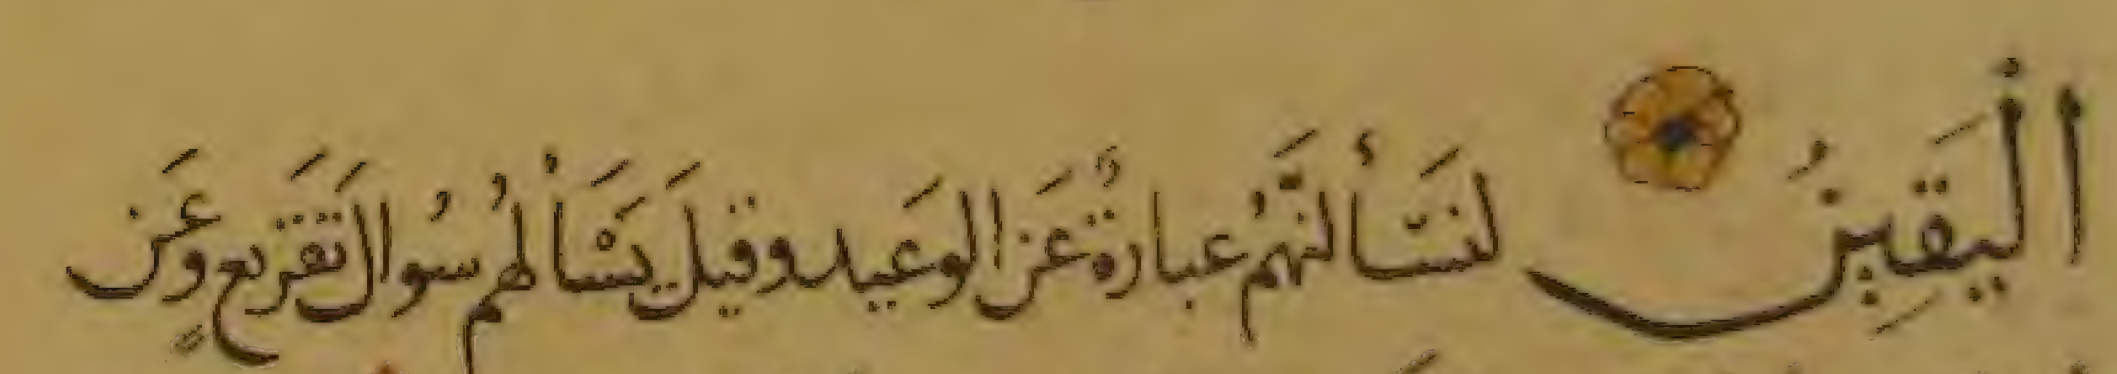 الْيَقِينُ لَنَسْأَلَنَّهُمْ عبارةٌ عَن الوَعيد وقيلَ يَسْأَلْهُم سُوالَ تَقْريعٍ وعَن